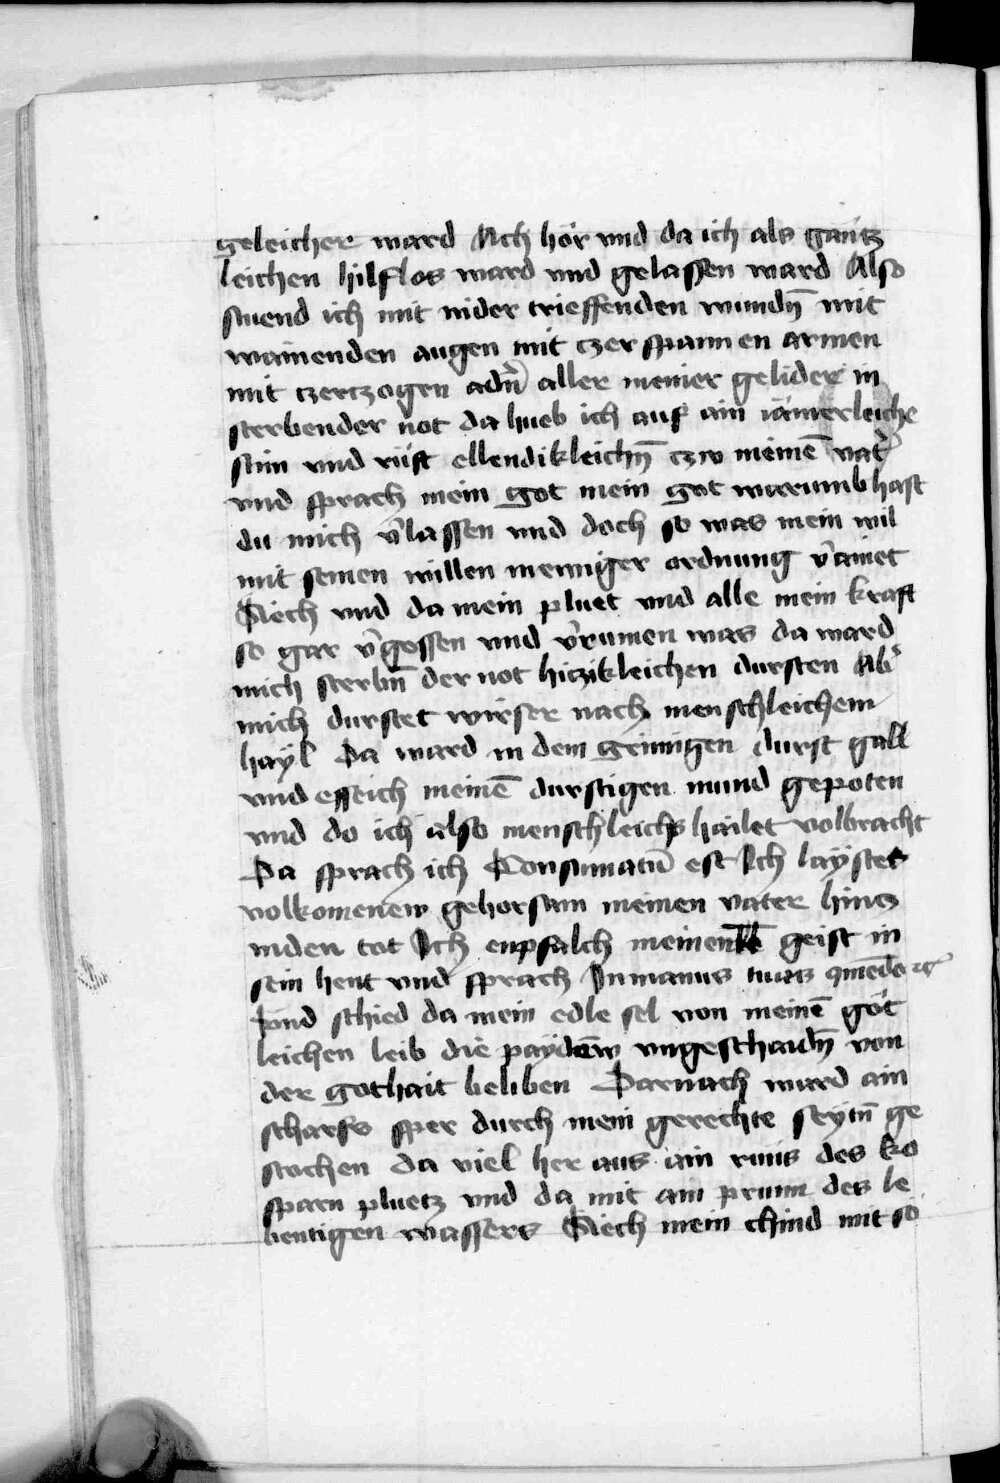 geleicher ward Ach hör vnd da ich als gantz
leichen hilflos ward vnd gelassen ward Also
stuend ich mit nider trieffenden wundn̄ mit
wainenden augen mit czerspannen armen
mit czerczogen adn̄ aller meiner gelider in
sterbender not da hueb ich auf ain iämerleiche
stim vnd rüft ellendikleichn̄ czw meinē vat̾
vnd sprach mein got mein got warumb hast
du mich v̾lassen vnd doch so was mein wil
mit seinen willen mit ewiger ordnung v̾ainet
Siech vnd da mein pluet vnd alle mein kraft
so gar v̾gossen vnd v̾runnen was da ward
mich sterbn̄ der not hiczikleichen dursten Ab̾
mich durstet wirser nach menschleichem
hayl Da ward in dem grimigen durst gall
vnd esseich meinē durstigen mund gepoten
vnd do ich also menschleichs hailet volbracht
Da sprach ich Consumatū est Ich laystet
volkomenew gehorsam meinen vater hincz
inden tot Ich enpfalch meinen geist in
sein hent vnd sprach In manus tuas
vnd schied da mein edle sel von meinē göt
leichen leib die paydew vngeschaidn̄ von
der gothait beliben Darnach ward ain
scharfs sper durch mein gerechte seytn̄ ge
stochen da viel her aus ain runs des ko
sparn pluetz vnd da mit ain prunn des le
bentigen wassers Siech mein chind mit so